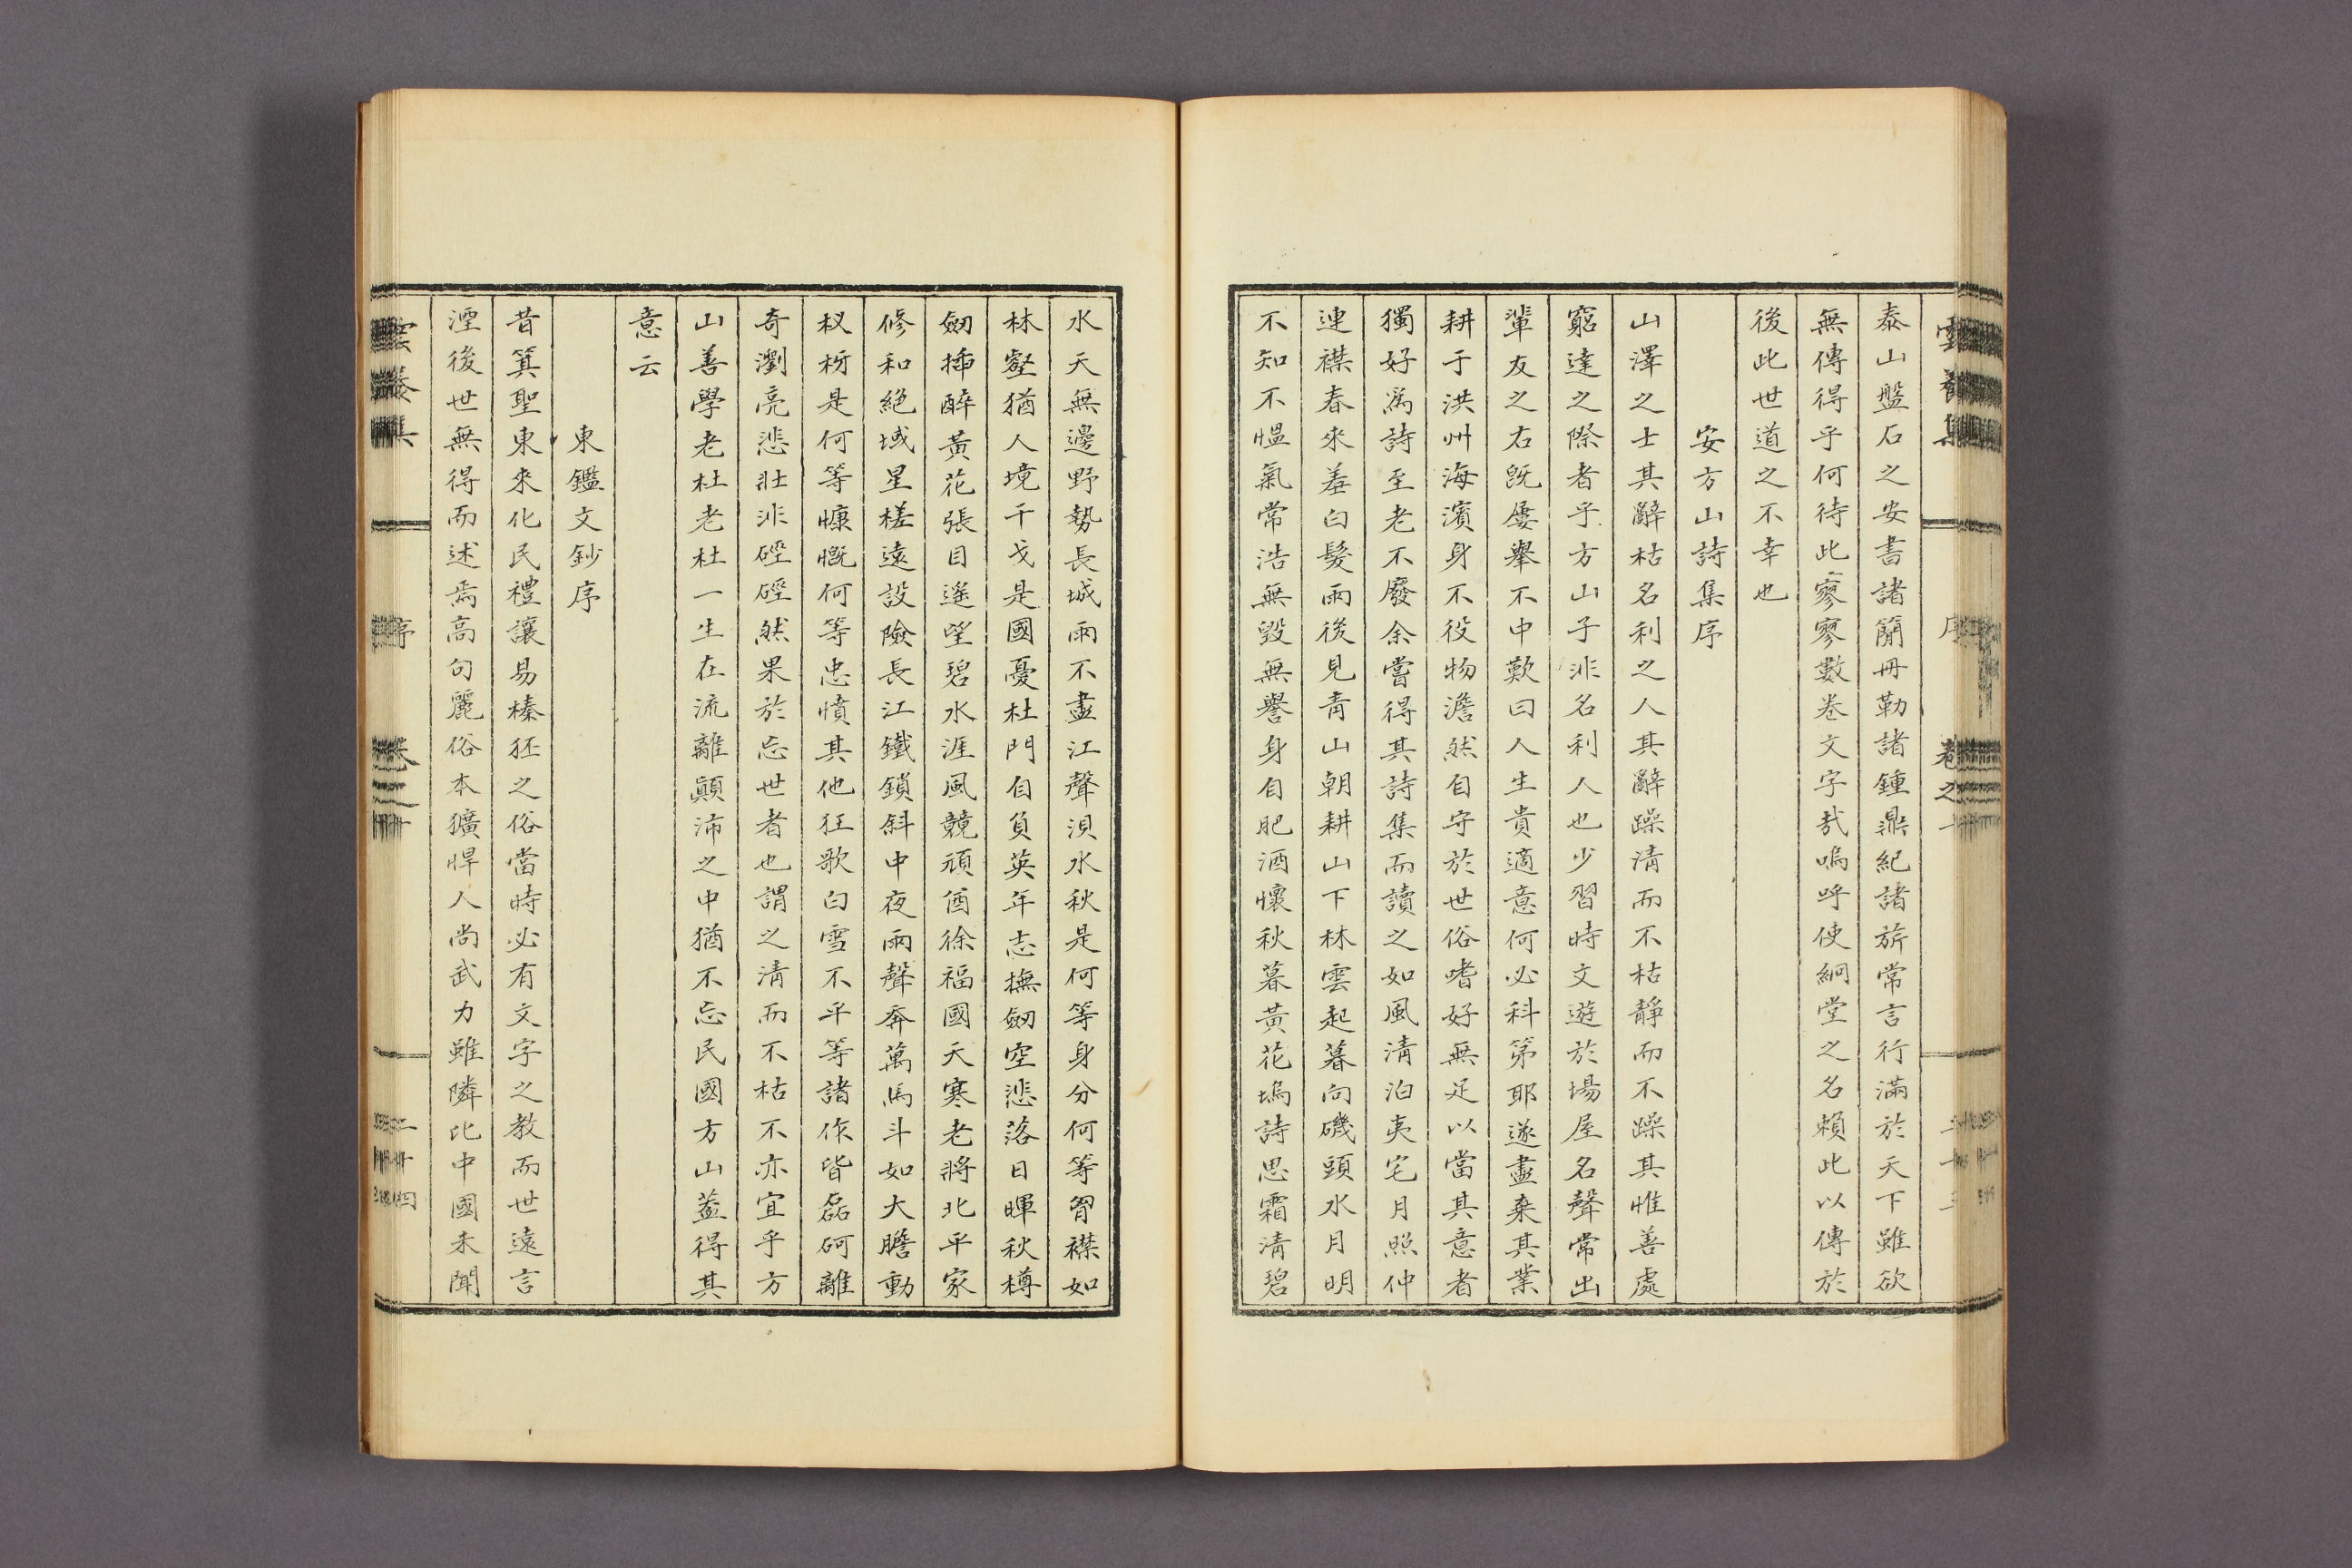 泰山盤石之安書諸簡冊勒諸鍾鼎紀諸旂常言行滿於天下雖欲
無傳得乎何待此寥寥數卷文字哉嗚呼使絅堂之名賴此以傳於
後此世道之不幸也
安方山詩集序
山澤之士其辭枯名利之人其辭躁淸而不枯靜而不躁其惟善處
窮達之際者乎方山子非名利人也少習時文遊於場屋名聲常出
輩友之右旣屢擧不中歎曰人生貴適意何必科第耶遂盡棄其業
耕于洪州海濱身不役物澹然自守於世俗嗜好無足以當其意者
獨好爲詩至老不廢余嘗得其詩集而讀之如風淸泊夷宅月照仲
連襟春來羞白髮雨後見靑山朝耕山下林雲起暮向磯頭水月明
不知不慍氣常浩無毁無譽身自肥酒懷秋暮黃花塢詩思霜淸碧
水天無邊野勢長城雨不盡江聲浿水秋是何等身分何等胷襟如
林壑猶人境干戈是國憂杜門自負英年志撫劒空悲落日暉秋樽
劒揷醉黃花張目遙望碧水涯風競頑酋徐福國天寒老將北平家
修和絕域星槎遠設險長江鐵鎖斜中夜雨聲奔萬馬斗如大膽動
杈枒是何等慷慨何等忠憤其他狂歌白雪不平等諸作皆磊砢離
奇瀏亮悲壯非硜硜然果於忘世者也謂之淸而不枯不亦宜乎方
山善學老杜老杜一生在流離顚沛之中猶不忘民國方山蓋得其
意云
東鑑文鈔序
昔箕聖東來化民禮讓易榛狉之俗當時必有文字之敎而世遠言
湮後世無得而述焉高句麗俗本獷悍人尙武力雖隣比中國未聞
雲養集 序 卷之